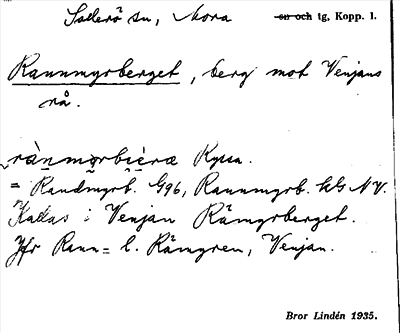 Sollerö sn, Mora
sn och tg, Kopp. l.
Rannmyrberget, berg mot Venjans
rå.
rànmỵrbi̯èræ Ryssa.
= Randmyrb. G96, Rannmyrb. hG NV.
Kallas i Venjan Råmyrberget.
Jfr Rann= l. Råmyren, Venjan.
Bror Lindén 1935.